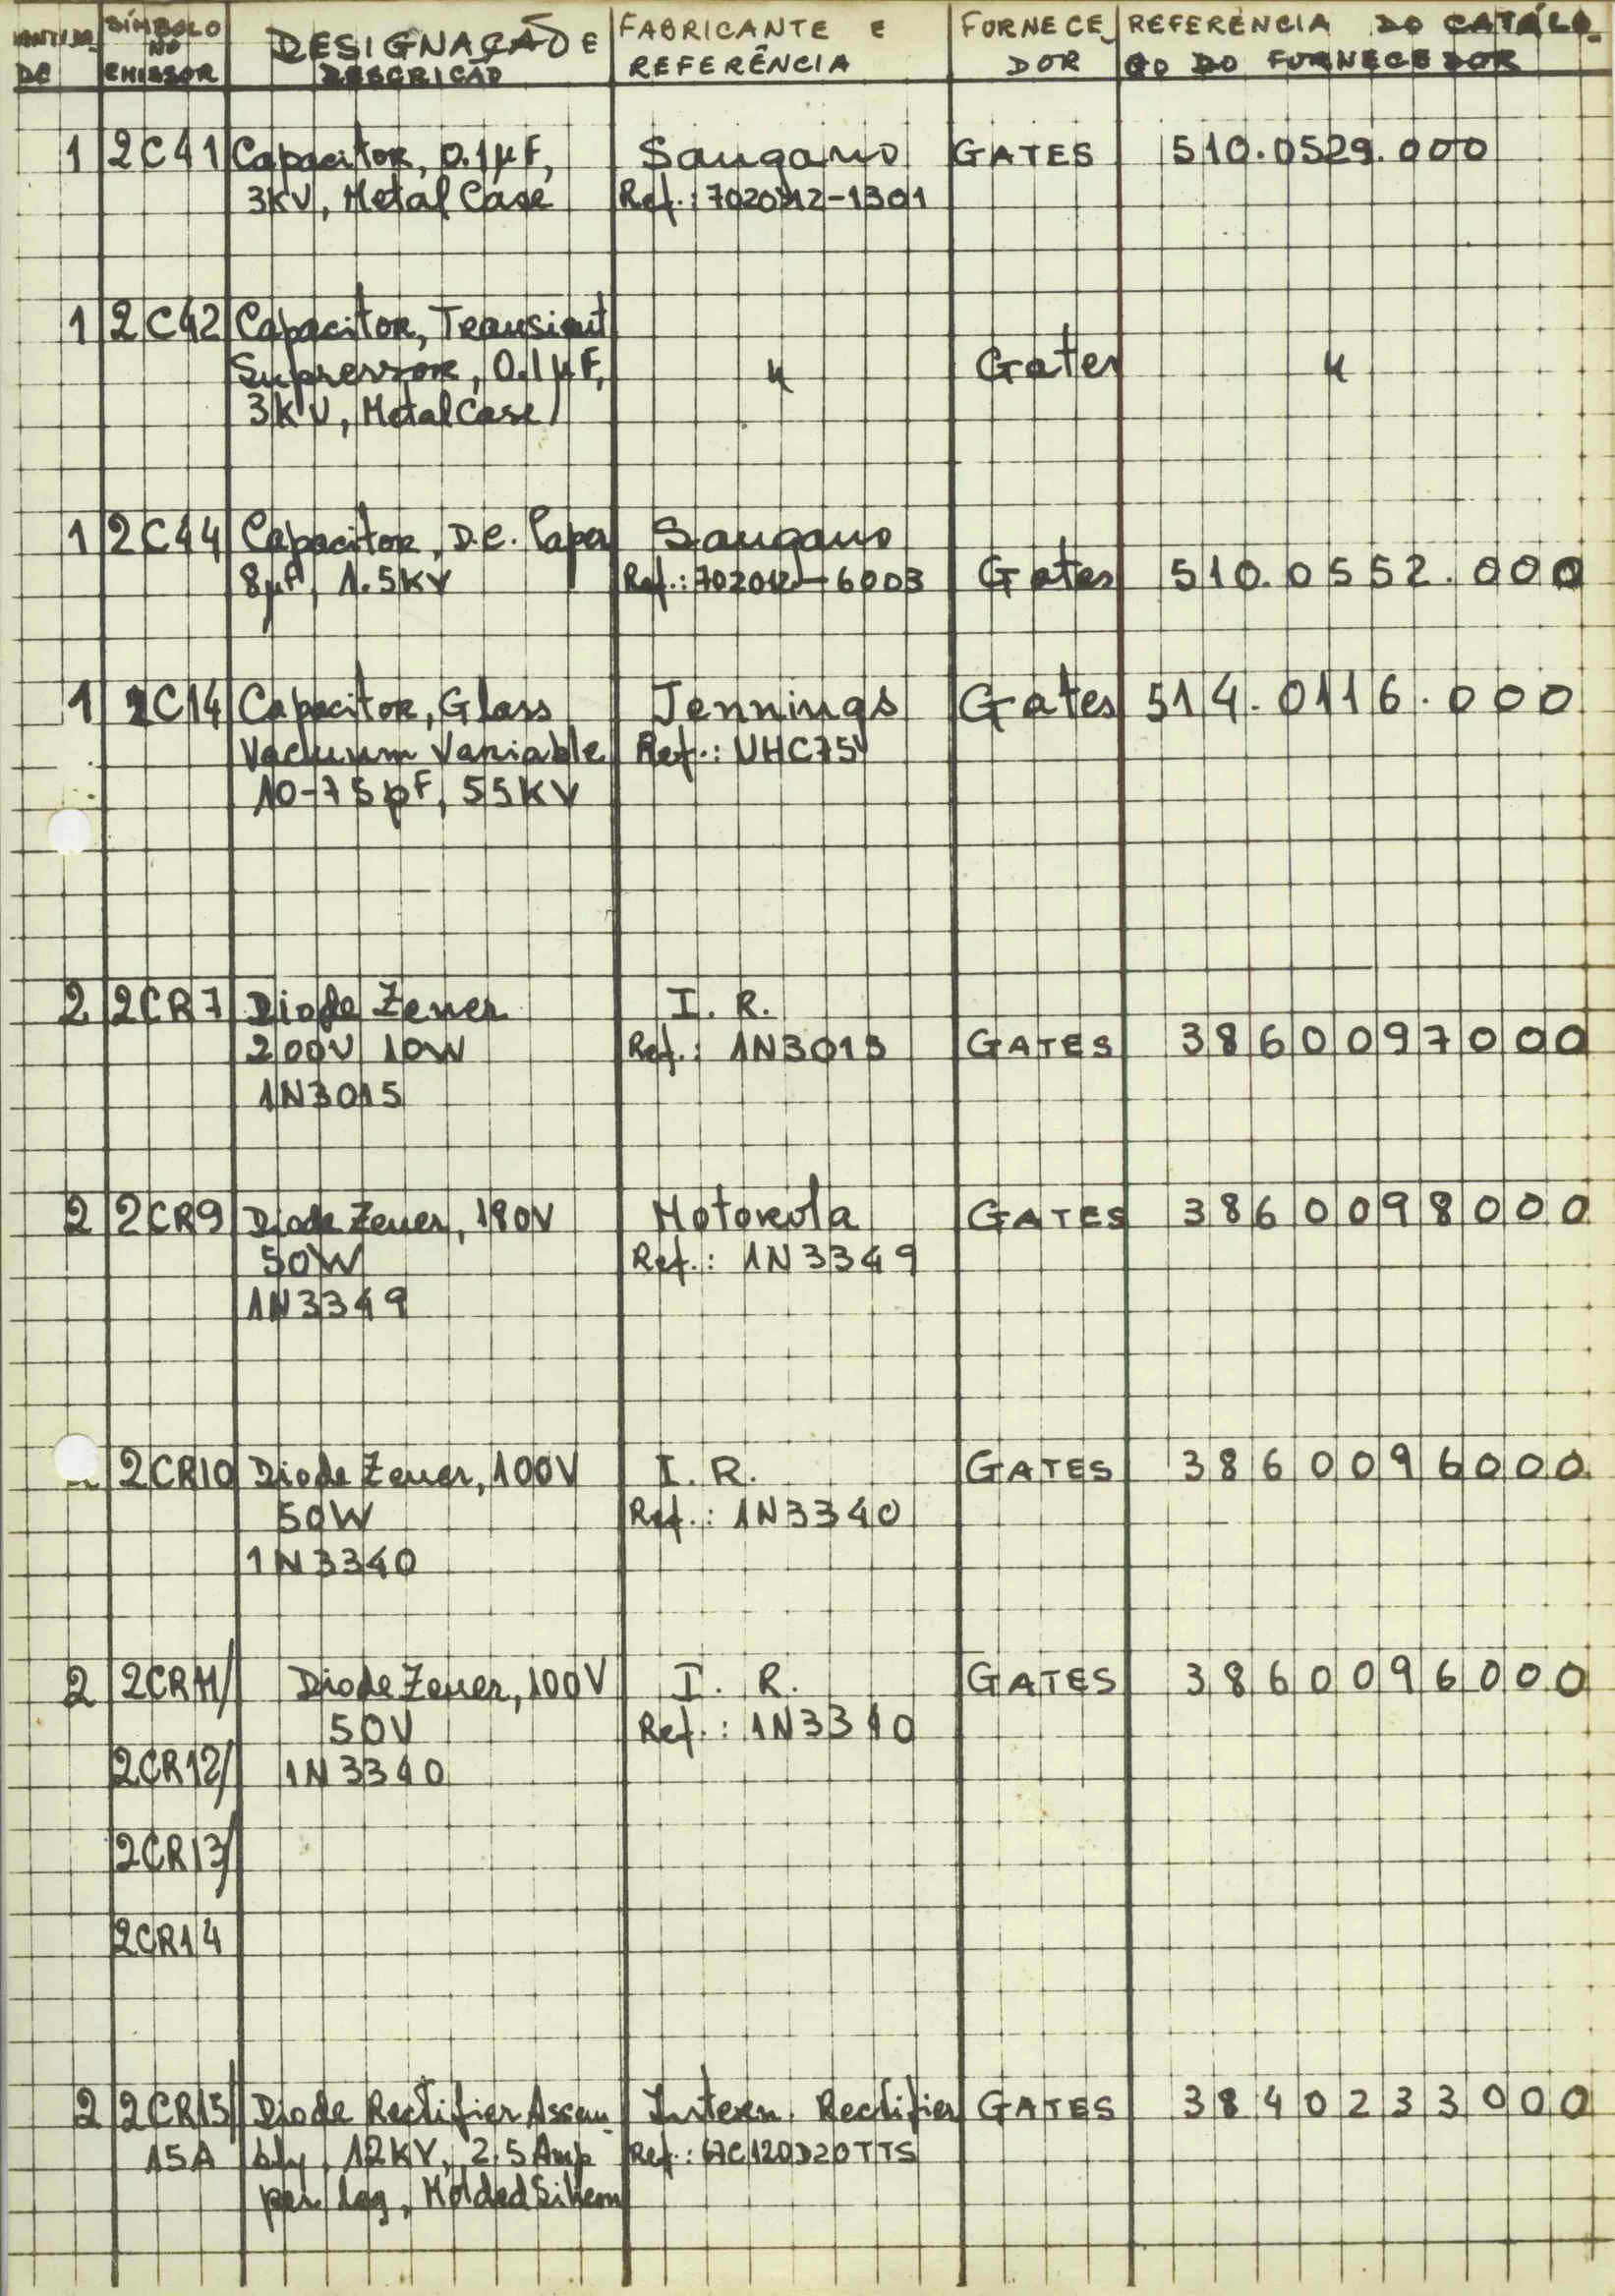 SÍMBOLO NO EMISSOR
DESIGNAÇÃO E DESCRIÇÃO
FABRICANTE E REFERÊNCIA
FORNECEDOR
REFERÊNCIA DO CATÁLOGO DO FORNECEDOR
1 2C41 Capacitor, 0.1µF, Sangano GATES 510.0529.000
3KV, Metal Case Ref.:
1 2C42 Capacitor, Transient
Supressor, 0.1µF, " Gates "
3KV, Metal Case
1 2C44 Capacitor, D.C. Paper Sangano
8µF, 1.5KV Ref.: 702012-6003 Gates 510.0552.000
1 2C14 Capacitor, Glass Jennings Gates 514.0116.000
Vacuum Variable Ref.: UHC75V
10-75pF, 55KV
2 2CR7 Diode Zener I. R.
200V 10W Ref.: 1N3015 GATES 3860097000
1N3015
2 2CR9 Diode Zener, 180V Motorola GATES 3860098000
50W Ref.: 1N3349
1N3349
2CR10 Diode Zener, 100V I. R. GATES 3860096000
50W Ref.: 1N3340
1N3340
2 2CR11/ Diode Zener, 100V I. R. GATES 3860096000
50V Ref.: 1N3340
2CR12/ 1N3340
2CR13/
2CR14
2 2CR15/ Diode Rectifier Assem- Intern. Rectifier GATES 3840233000
15A bly, 12KV, 2.5 Amp Ref.:
per Leg, Molded Silicon